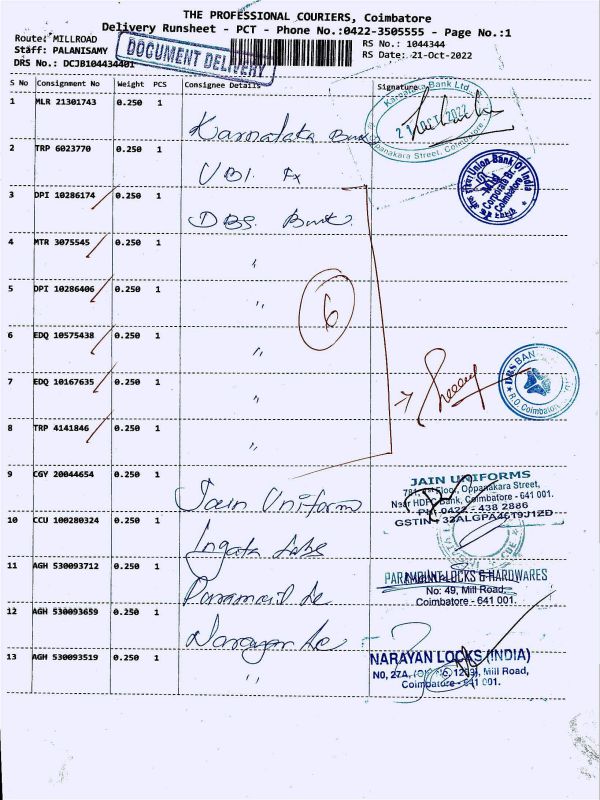 THE PROFESSIONAL COURIERS, Coimbatore
Delivery Runsheet - PCT - Phone No.:0422-3505555 - Page No.:1
Route: MILLROAD
Staff: PALANISAMY
DRS No.: DCJB104434401
DOCUMENT DELIVERY
RS No.: 1044344
RS Date: 21-Oct-2022
S No Consignment No Weight PCS Consignee Details Signature
1 MLR 21301743 0.250 1 Karnataka Bank
Karnataka Bank Ltd.
21 OCT 2022
Oppanakara Street, Coimbatore
2 TRP 6023770 0.250 1 UBI Fx
Union Bank Of India
Corporate Br.
Coimbatore
3 DPI 10286174 0.250 1 DBS Bank
4 MTR 3075545 0.250 1 "
5 DPI 10286406 0.250 1 "
6
6 EDQ 10575438 0.250 1 "
7 EDQ 10167635 0.250 1 "
DBS BANK
R.O. Coimbatore
8 TRP 4141846 0.250 1 "
9 CGY 20044654 0.250 1 Jain Uniforms
JAIN UNIFORMS
Floor, Oppanakara Street,
Near HDFC Bank, Coimbatore - 641 001.
PH: 0422 - 438 2886
GSTIN - 33ALGPA4619J1ZD
10 CCU 100280324 0.250 1
11 AGH 530093712 0.250 1
PARAMOUNT LOCKS & HARDWARES
No: 49, Mill Road,
Coimbatore - 641 001.
12 AGH 530093659 0.250 1 Narayan
13 AGH 530093519 0.250 1 "
NARAYAN LOCKS (INDIA)
NO, 27A, Mill Road,
Coimbatore - 641 001.